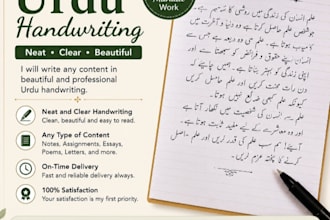 Urdu
Handwriting
Neat • Clear • Beautiful
I will write any content
in beautiful and professional
Urdu handwriting.
Neat and Clear Handwriting
Clean, beautiful and easy to read.
Any Type of Content
Notes, Assignments, Essays,
Poems, Letters, and more.
On-Time Delivery
Fast and reliable delivery always.
100% Satisfaction
Your satisfaction is my first priority.
Work
علم انسان کی زندگی میں روشنی کی مانند ہے۔
جو شخص علم حاصل کرتا ہے وہ دنیا و آخرت میں
کامیاب ہوتا ہے۔ علم ہی وہ ذریعہ ہے جس سے
انسان اپنے حقوق و فرائض کو سمجھتا ہے اور
اپنی زندگی کو بہتر بناتا ہے۔ ہمیں چاہیے کہ
دن رات محنت کریں اور علم حاصل کریں
کیونکہ علم کبھی ضائع نہیں ہوتا۔
علم سے انسان کی شخصیت میں نکھار آتا ہے
اور وہ معاشرے کے لیے مفید ثابت ہوتا ہے۔
آئیے! ہم سب علم کی قدر کریں اور علم حاصل
کرنے کا پختہ عزم کریں۔